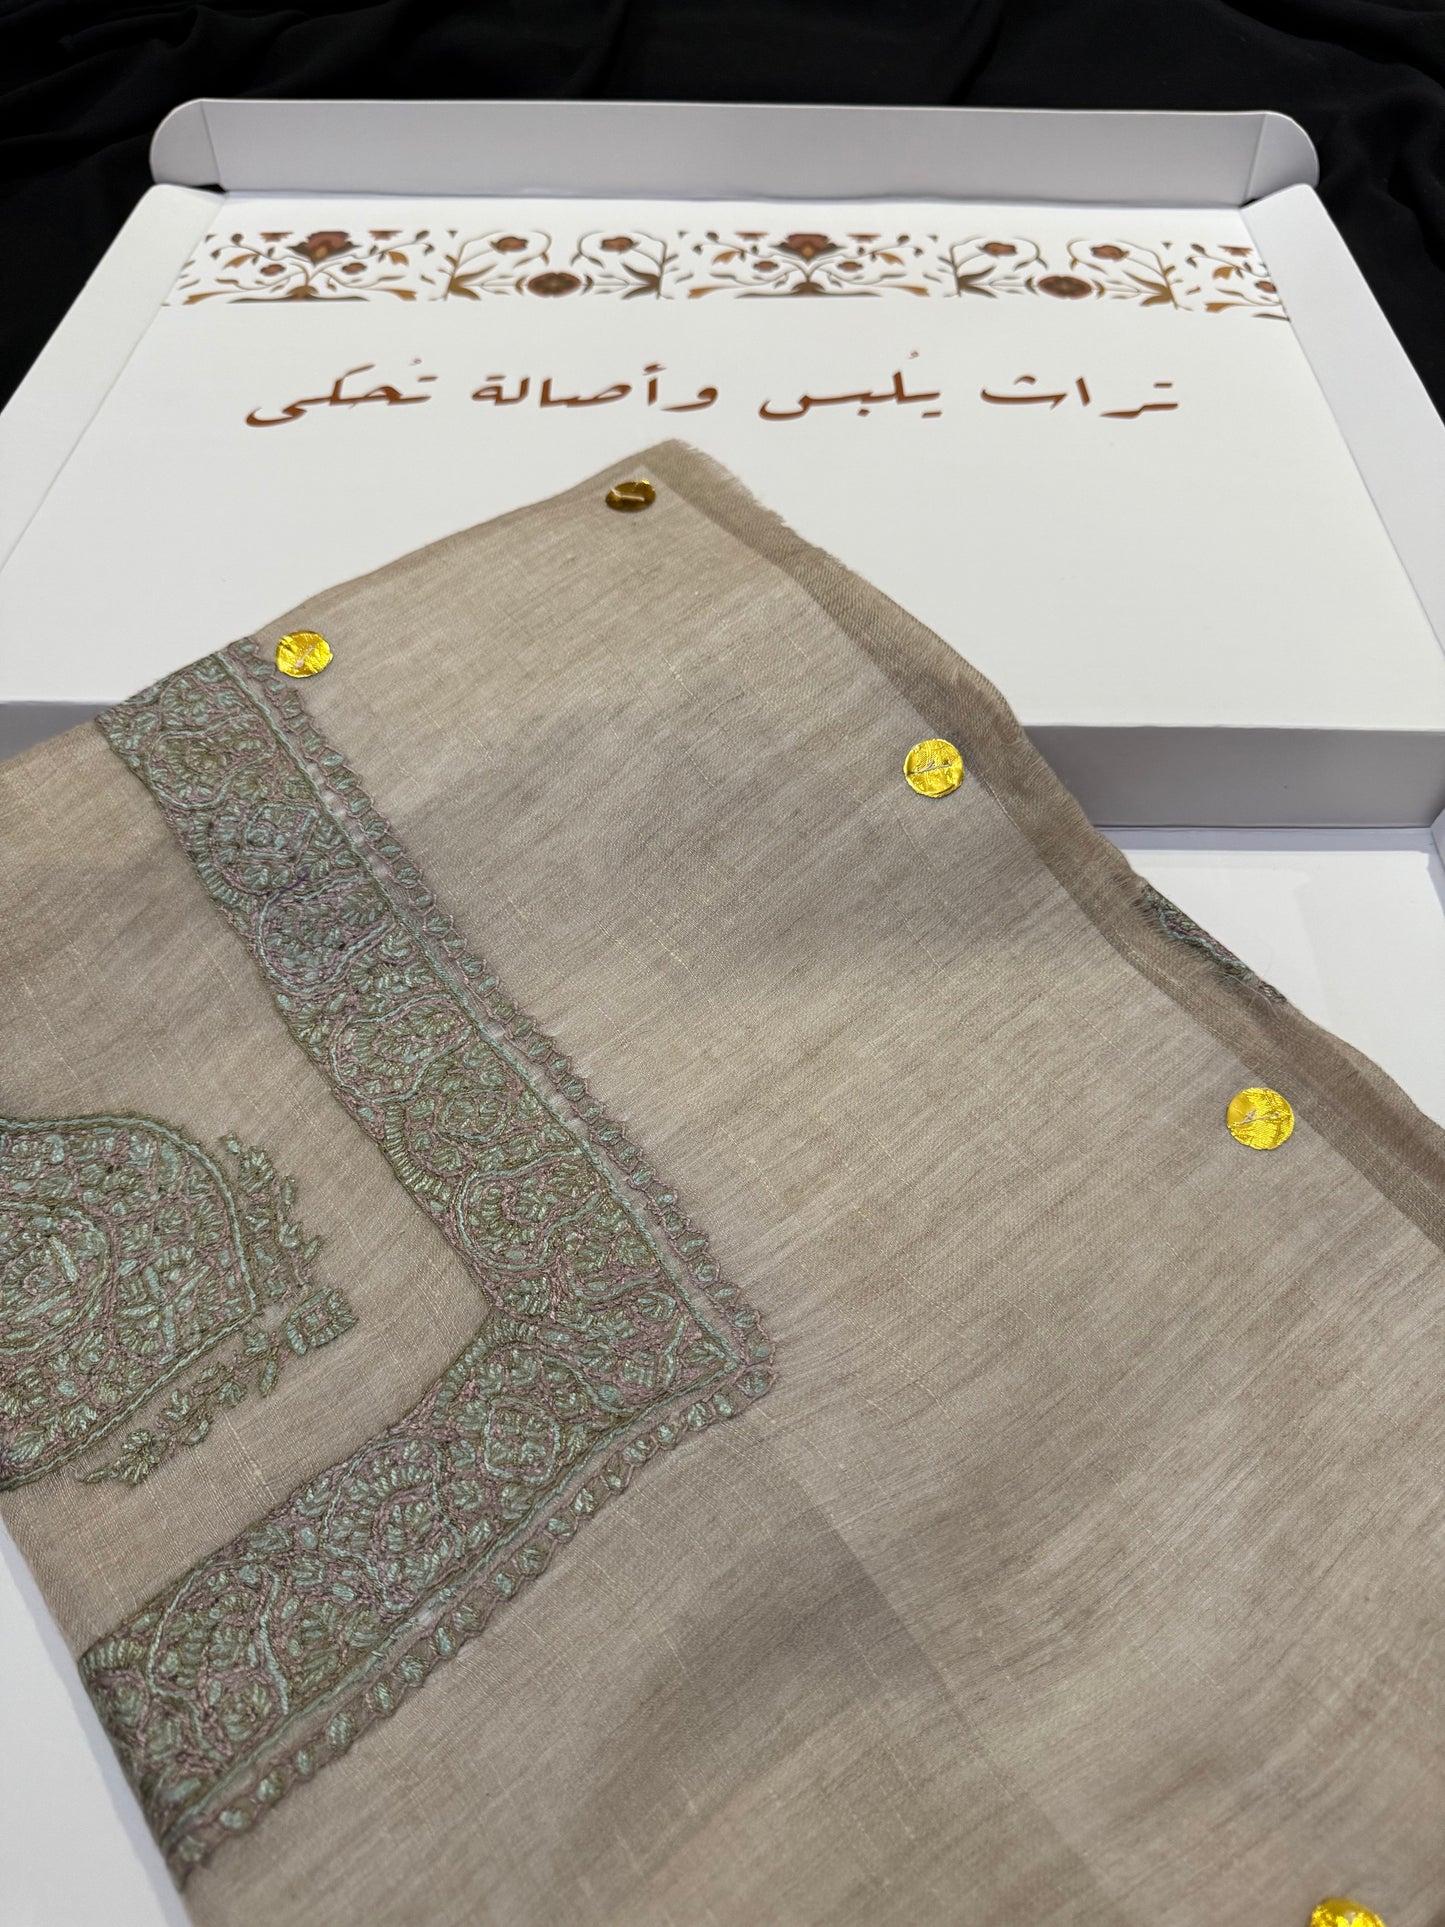 تراث يُلبس وأصالة تُحكى